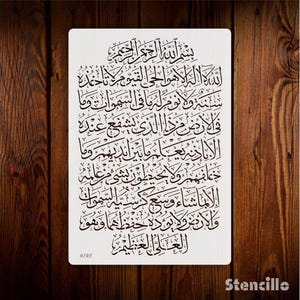 بسم الله الرحمن الرحيم
الله لا إله إلا هو الحي القيوم لا تأخذه
سنة ولا نوم له ما في السموات وما
في الأرض من ذا الذي يشفع عنده
إلا بإذنه يعلم ما بين أيديهم وما
خلفهم ولا يحيطون بشيء من علمه
إلا بما شاء وسع كرسيه السموات
والأرض ولا يؤده حفظهما وهو
العلي العظيم
Stencillo